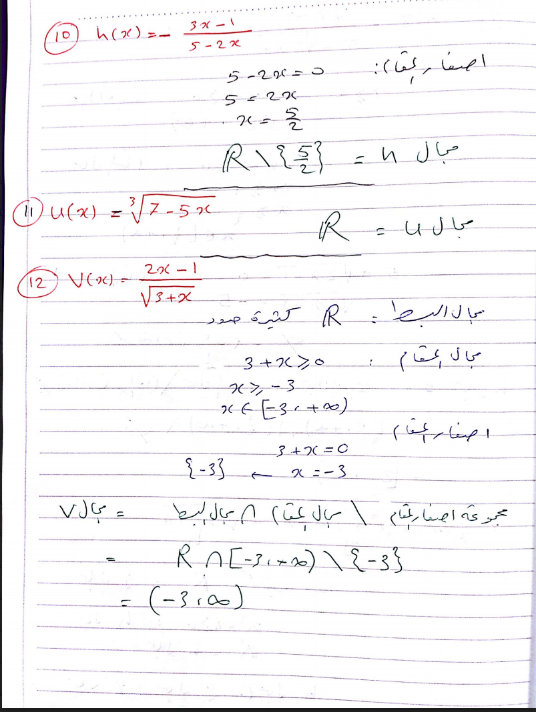 10 h(x) = - 3x-1 / 5-2x
اصفار المقام: 5-2x=0
5=2x
x = 5/2
مجال h = ℝ \ {5/2}
11 u(x) = ∛7-5x
مجال u = ℝ
12 V(x) = 2x-1 / √3+x
مجال البسط: ℝ كثيرة حدود
مجال المقام: 3+x ≥ 0
x ≥ -3
x ∈ [-3, +∞)
اصفار المقام
3+x=0
x = -3 → {-3}
مجال V = مجال البسط ∩ مجال المقام \ مجموعة اصفار المقام
= R ∩ [-3, +∞) \ {-3}
= (-3, ∞)